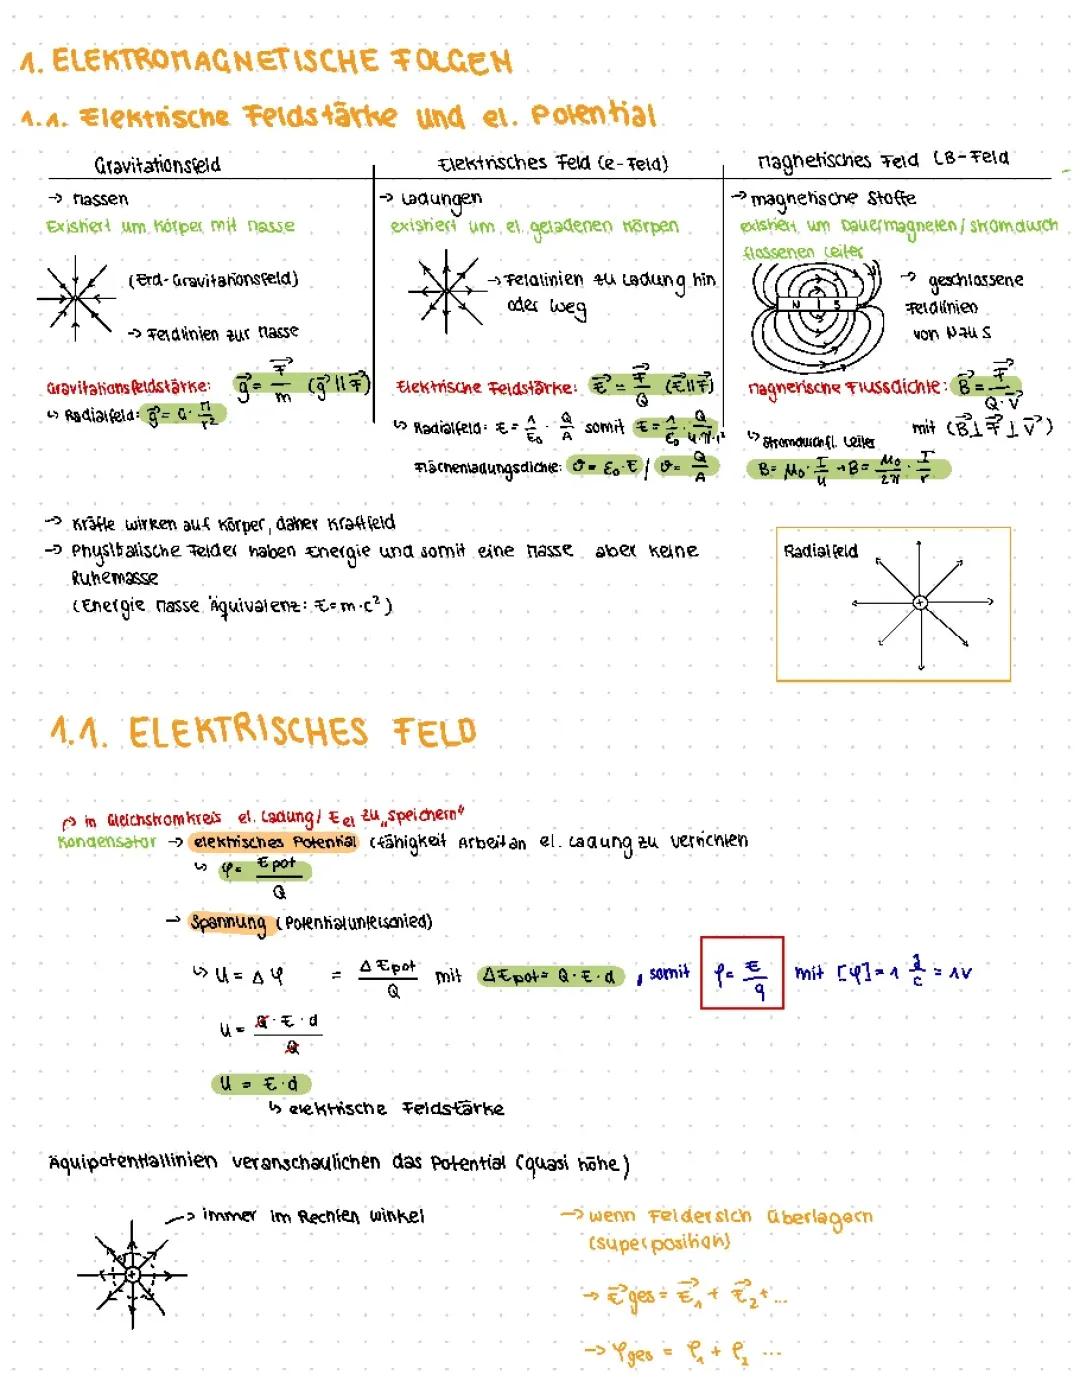 1. ELEKTROMAGNETISCHE FOLGEN
1.1. Elektrische Feldstärke und el. Potential
Gravitationsfeld
Elektrisches Feld (e-Feld)
Magnetisches Feld (B-Feld
→ Massen
→ Ladungen
→ magnetische Stoffe
Existiert um Körper mit Masse
existiert um el. geladenen Körpern
existiert um Dauermagneten / stromdurch
flossenen Leiter
(Erd-Gravitationsfeld)
→ Feldlinien zur Masse
→ Feldlinien zu Ladung hin
oder weg
N | S
→ geschlossene
Feldlinien
von N zu S
Gravitationsfeldstärke: g⃗ = F⃗/m (g⃗ || F⃗)
↳ Radialfeld: g⃗ = G · M/r²
Elektrische Feldstärke: E⃗ = F⃗/Q (E⃗ || F⃗)
↳ Radialfeld: E = 1/ε₀ · Q/A somit E = 1/ε₀ · Q/4·π·r²
Flächenladungsdichte: σ = ε₀ · E / σ = Q/A
Magnetische Flussdichte: B⃗ = F⃗/Q·v⃗
mit (B⃗ ⊥ F⃗ ⊥ v⃗)
↳ Stromdurchfl. Leiter
B = μ₀ · I/u → B = μ₀/2π · I/r
→ Kräfte wirken auf Körper, daher Kraftfeld
→ Physikalische Felder haben Energie und somit eine Masse aber keine
Ruhemasse
(Energie Masse Äquivalenz: E = m·c²)
Radialfeld
+
1.1. ELEKTRISCHES FELD
↱ in Gleichstromkreis el. Ladung / E el zu „speichern"
Kondensator → elektrisches Potential (fähigkeit Arbeit an el. Ladung zu verrichten
↳ φ = E pot/Q
→ Spannung (Potentialunterschied)
↳ U = Δφ = ΔEpot/Q mit ΔEpot = Q·E·d, somit φ = E/q mit [φ] = 1 J/C = 1V
U = Q·E·d/Q
U = E·d
↳ elektrische Feldstärke
Äquipotentiallinien veranschaulichen das Potential (quasi höhe)
→ immer im Rechten winkel
+
→ wenn Felder sich überlagern
(superposition)
→ E⃗ges = E⃗₁ + E⃗₂ + ...
→ φges = φ₁ + φ₂ ...